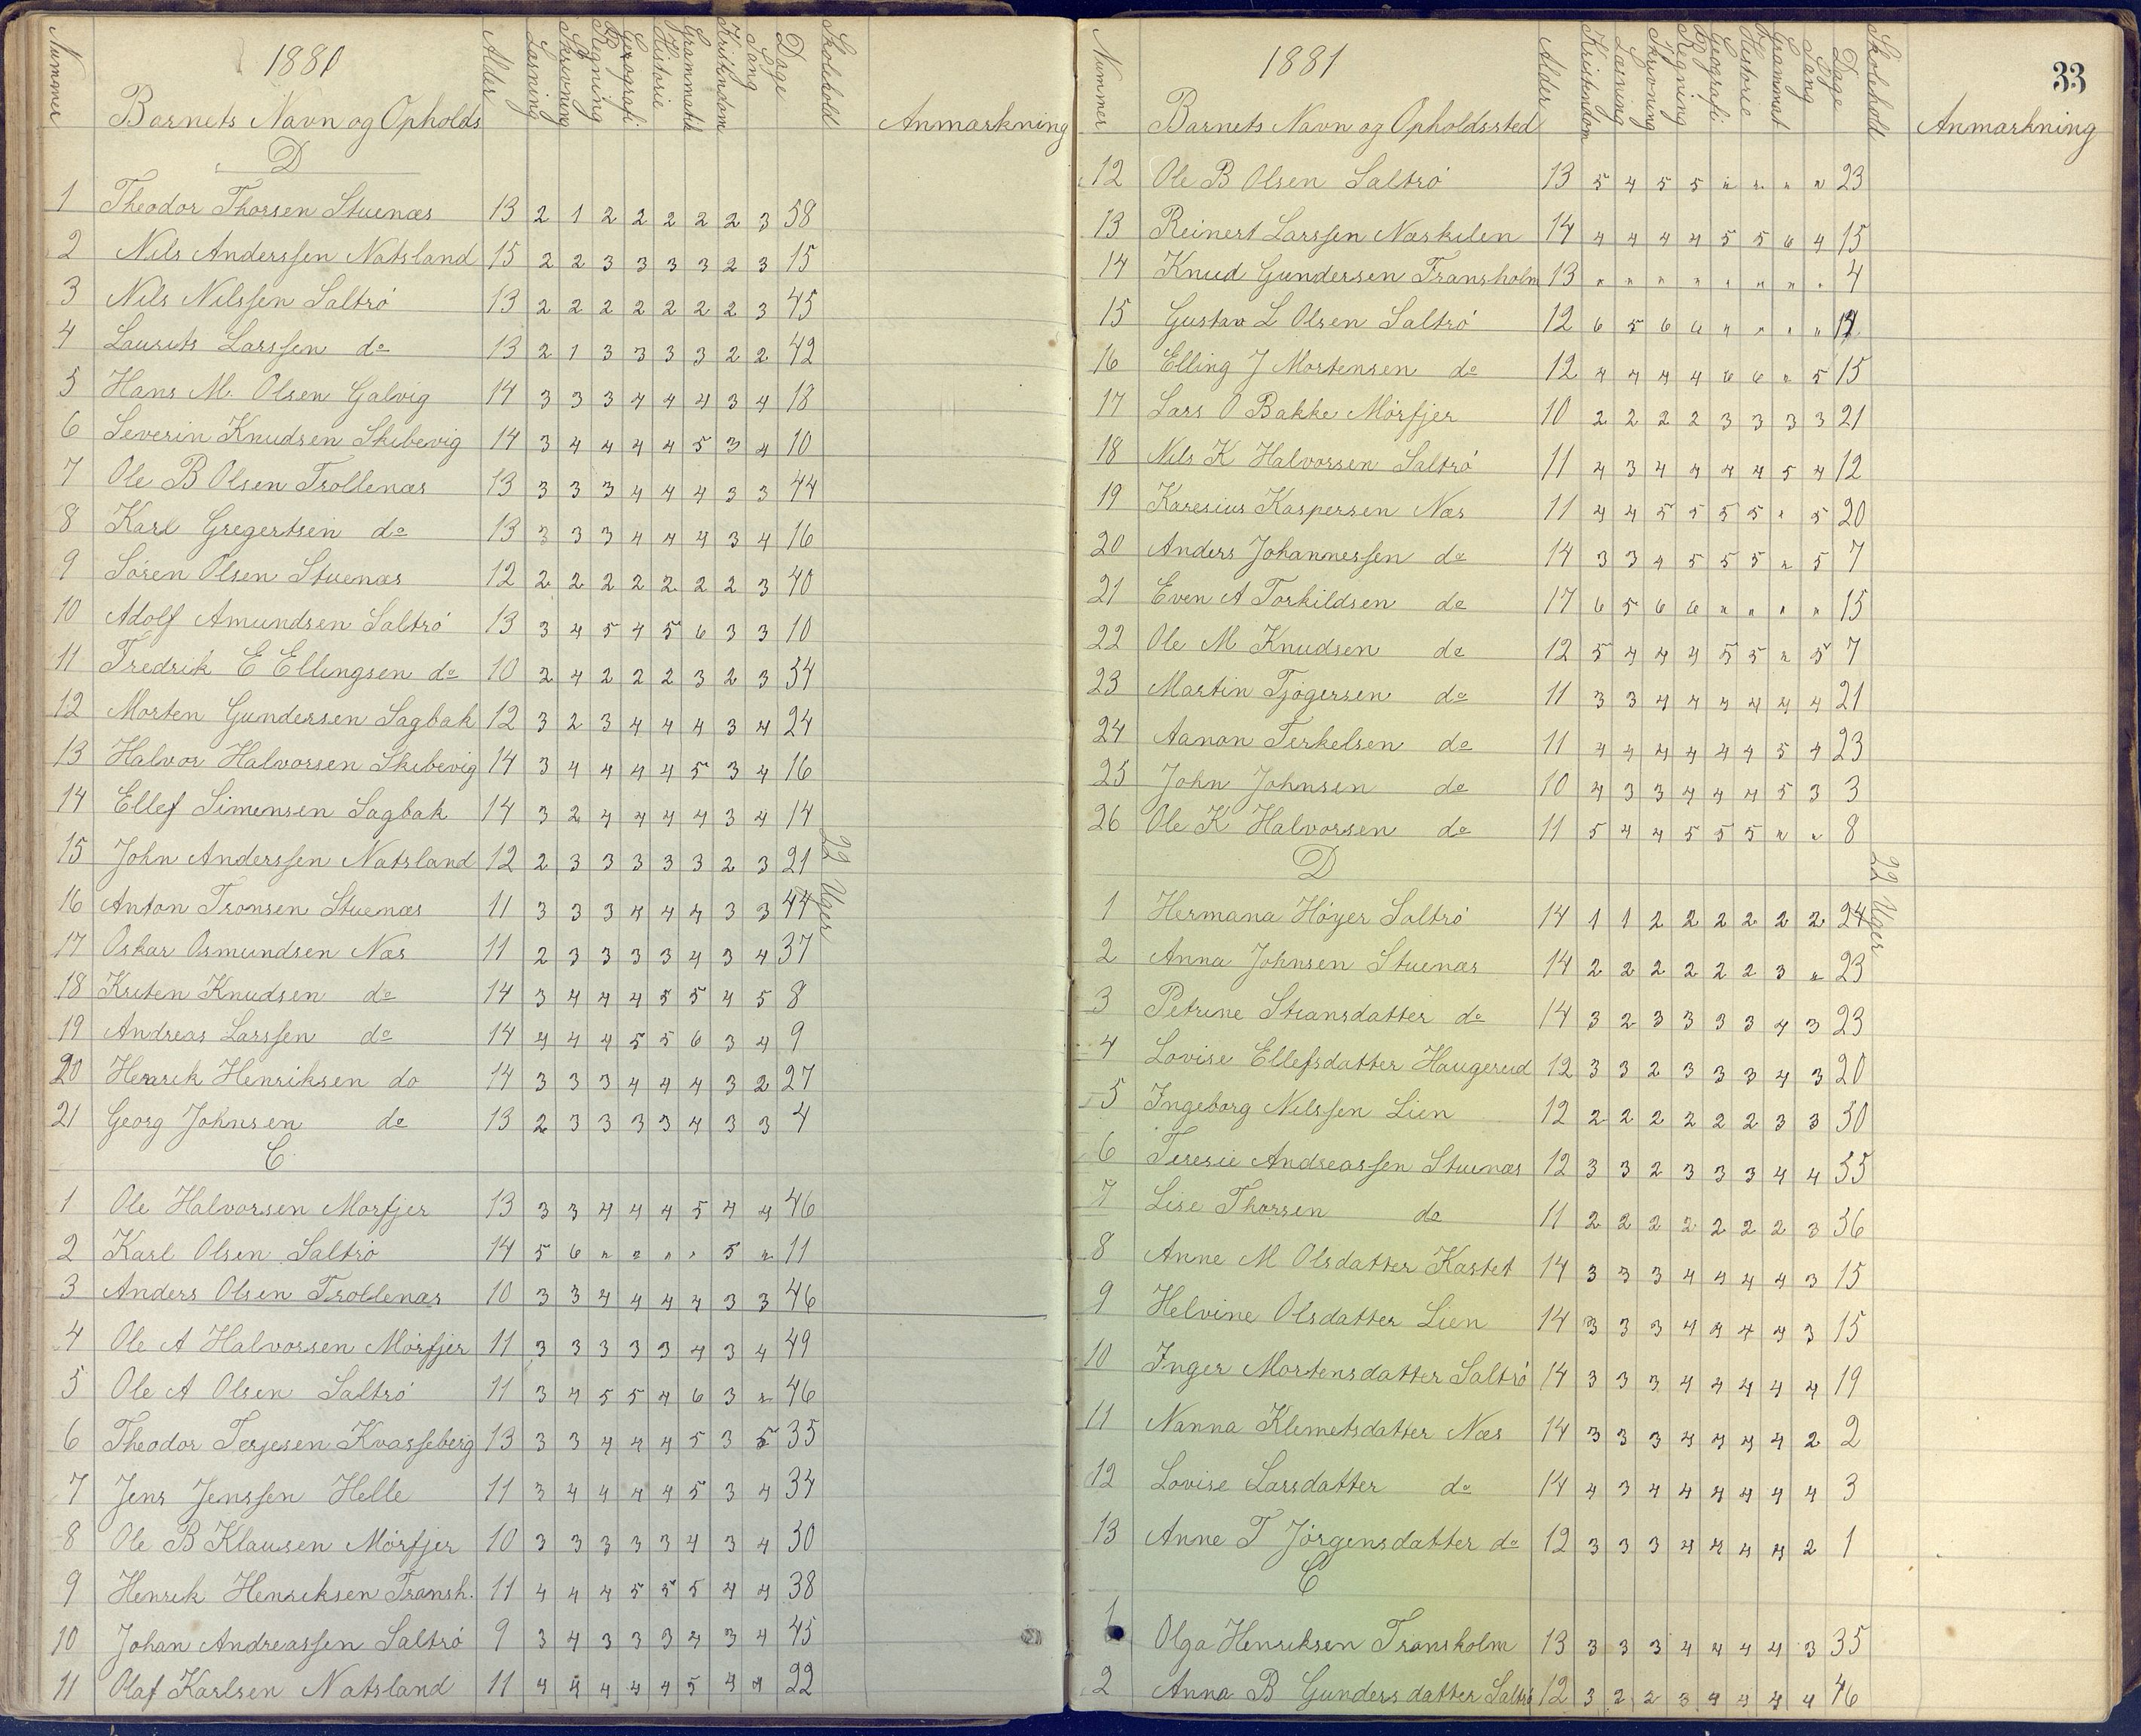 1880
Nummer Barnets Navn og Opholds Alder Læsning Skrivning Regning Geografi Historie Grammatik Kristindom Sang Dage Skolehold Anmærkning
D
1 Theodor Thorsen Stuenæs 13 2 1 2 2 2 2 2 3 58
2 Nils Anderssen Natsland 15 2 2 3 3 3 3 2 3 15
3 Nils Nilssen Saltrö 13 2 2 2 2 2 2 2 3 45
4 Laurits Larssen do 13 2 1 3 3 3 3 2 2 42
5 Hans M. Olsen Galvig 14 3 3 3 4 4 4 3 4 18
6 Severin Knudsen Skibevig 14 3 4 4 4 4 5 3 4 10
7 Ole B Olsen Trollenæs 13 3 3 3 4 4 4 3 3 44
8 Karl Gregertsen do 13 3 3 3 4 4 4 3 4 16
9 Sören Olsen Stuenæs 12 2 2 2 2 2 2 2 3 40
10 Adolf Amundsen Saltrö 13 3 4 5 4 5 6 3 3 10
11 Fredrik E Ellingsen do 10 2 4 2 2 2 3 2 3 54
12 Morten Gundersen Sagbak 12 3 2 3 4 4 4 3 4 24
13 Halvor Halvorsen Skibevig 14 3 4 4 4 4 5 3 4 16
14 Ellef Simensen Sagbak 14 3 2 4 4 4 4 3 4 14
15 John Anderssen Natsland 12 2 3 3 3 3 3 2 3 21
22 Uger
16 Anton Tronsen Stuenæs 11 3 3 3 4 4 4 3 3 44
17 Oskar Osmundsen Næs 11 2 3 3 3 3 4 3 4 37
18 Kristen Knudsen do 14 3 4 4 4 5 5 4 5 8
19 Andreas Larssen do 14 4 4 4 5 5 6 3 4 9
20 Henrik Henriksen do 14 3 3 3 4 4 4 3 2 27
21 Georg Johnsen do 13 2 3 3 3 3 4 3 3 4
C
1 Ole Halvorsen Morfjer 13 3 3 4 4 4 5 4 4 46
2 Karl Olsen Saltrö 14 5 6 " " " " 5 " 11
3 Anders Olsen Trollenæs 10 3 3 4 4 4 4 3 3 46
4 Ole A Halvorsen Mörfjer 11 3 3 3 3 3 4 3 4 49
5 Ole A Olsen Saltrö 11 3 4 5 5 4 6 3 " 46
6 Theodor Terjesen Kvasseberg 13 3 3 4 4 4 5 3 5 35
7 Jens Jenssen Helle 11 3 4 4 4 4 5 3 4 34
8 Ole B Klausen Mörfjer 10 3 3 3 3 3 4 3 4 30
9 Henrik Henriksen Transh. 11 4 4 4 5 5 5 4 4 38
10 Johan Andreassen Saltrö 9 3 4 3 3 3 4 3 4 45
11 Olaf Karlsen Natsland 11 4 4 4 4 4 5 4 4 22
33
1881
Nummer Barnets Navn og Opholdssted Alder Kristindom Læsning Skrivning Regning Geografi Historie Grammat Sang Dage Skoleholdt Anmærkning
12 Ole B Olsen Saltrö 13 5 4 5 5 " " " " 23
13 Reinert Larssen Næskilen 14 4 4 4 4 5 5 6 4 15
14 Knud Gundersen Transholm 13 " " " " " " " " 4
15 Gustav L Olsen Saltrö 12 6 5 6 6 " " " "
16 Elling J Mortensen do 12 4 4 4 4 6 6 " 5 15
17 Lars O Bakke Mörfjer 10 2 2 2 2 3 3 3 3 21
18 Nils K Halvorsen Saltrö 11 4 3 4 4 4 4 5 4 12
19 Karesius Kaspersen Næs 11 4 4 5 5 5 5 " 5 20
20 Anders Johannessen do 14 3 3 4 5 5 5 " 5 7
21 Even A Torkildsen do 17 6 5 6 6 " " " " 15
22 Ole M Knudsen do 12 5 4 4 4 5 5 " 5 7
23 Martin Tjögersen do 11 3 3 4 4 4 4 4 4 21
24 Aanon Terkelsen do 11 4 4 4 4 4 4 5 4 23
25 John Johnsen do 10 4 3 3 4 4 4 5 3 3
26 Ole K Halvorsen do 11 5 4 4 5 5 5 " " 8
D
22 Uger
1 Hermana Höyer Saltrö 14 1 1 2 2 2 2 2 2 24
2 Anna Johnsen Stuenæs 14 2 2 2 2 2 2 3 " 23
3 Petrine Stiansdatter do 14 3 2 3 3 3 3 4 3 23
4 Lovise Ellefsdatter Haugerud 12 3 3 2 3 3 3 4 3 20
5 Ingeborg Nilssen Lien 12 2 2 2 2 2 2 3 3 50
6 Teresie Andreassen Stuenæs 12 3 3 2 3 3 3 4 4 55
7 Lise Thorsen do 11 2 2 2 2 2 2 2 3 36
8 Anne M Olsdatter Kastet 14 3 3 3 4 4 4 4 3 15
9 Helvine Olsdatter Lien 14 3 3 3 4 4 4 4 3 15
10 Inger Mortensdatter Saltrö 14 3 3 3 4 4 4 4 4 19
11 Nanna Klemetsdatter Næs 14 3 3 3 4 4 4 4 2 2
12 Lovise Larsdatter do 14 4 3 4 4 4 4 4 4 3
13 Anne T Jörgensdatter do 12 3 3 3 4 4 4 4 2 1
C
1 Olga Henriksen Transholm 13 3 3 3 4 4 4 4 3 35
2 Anna B Gundersdatter Saltrö 12 3 2 2 3 4 4 4 4 46